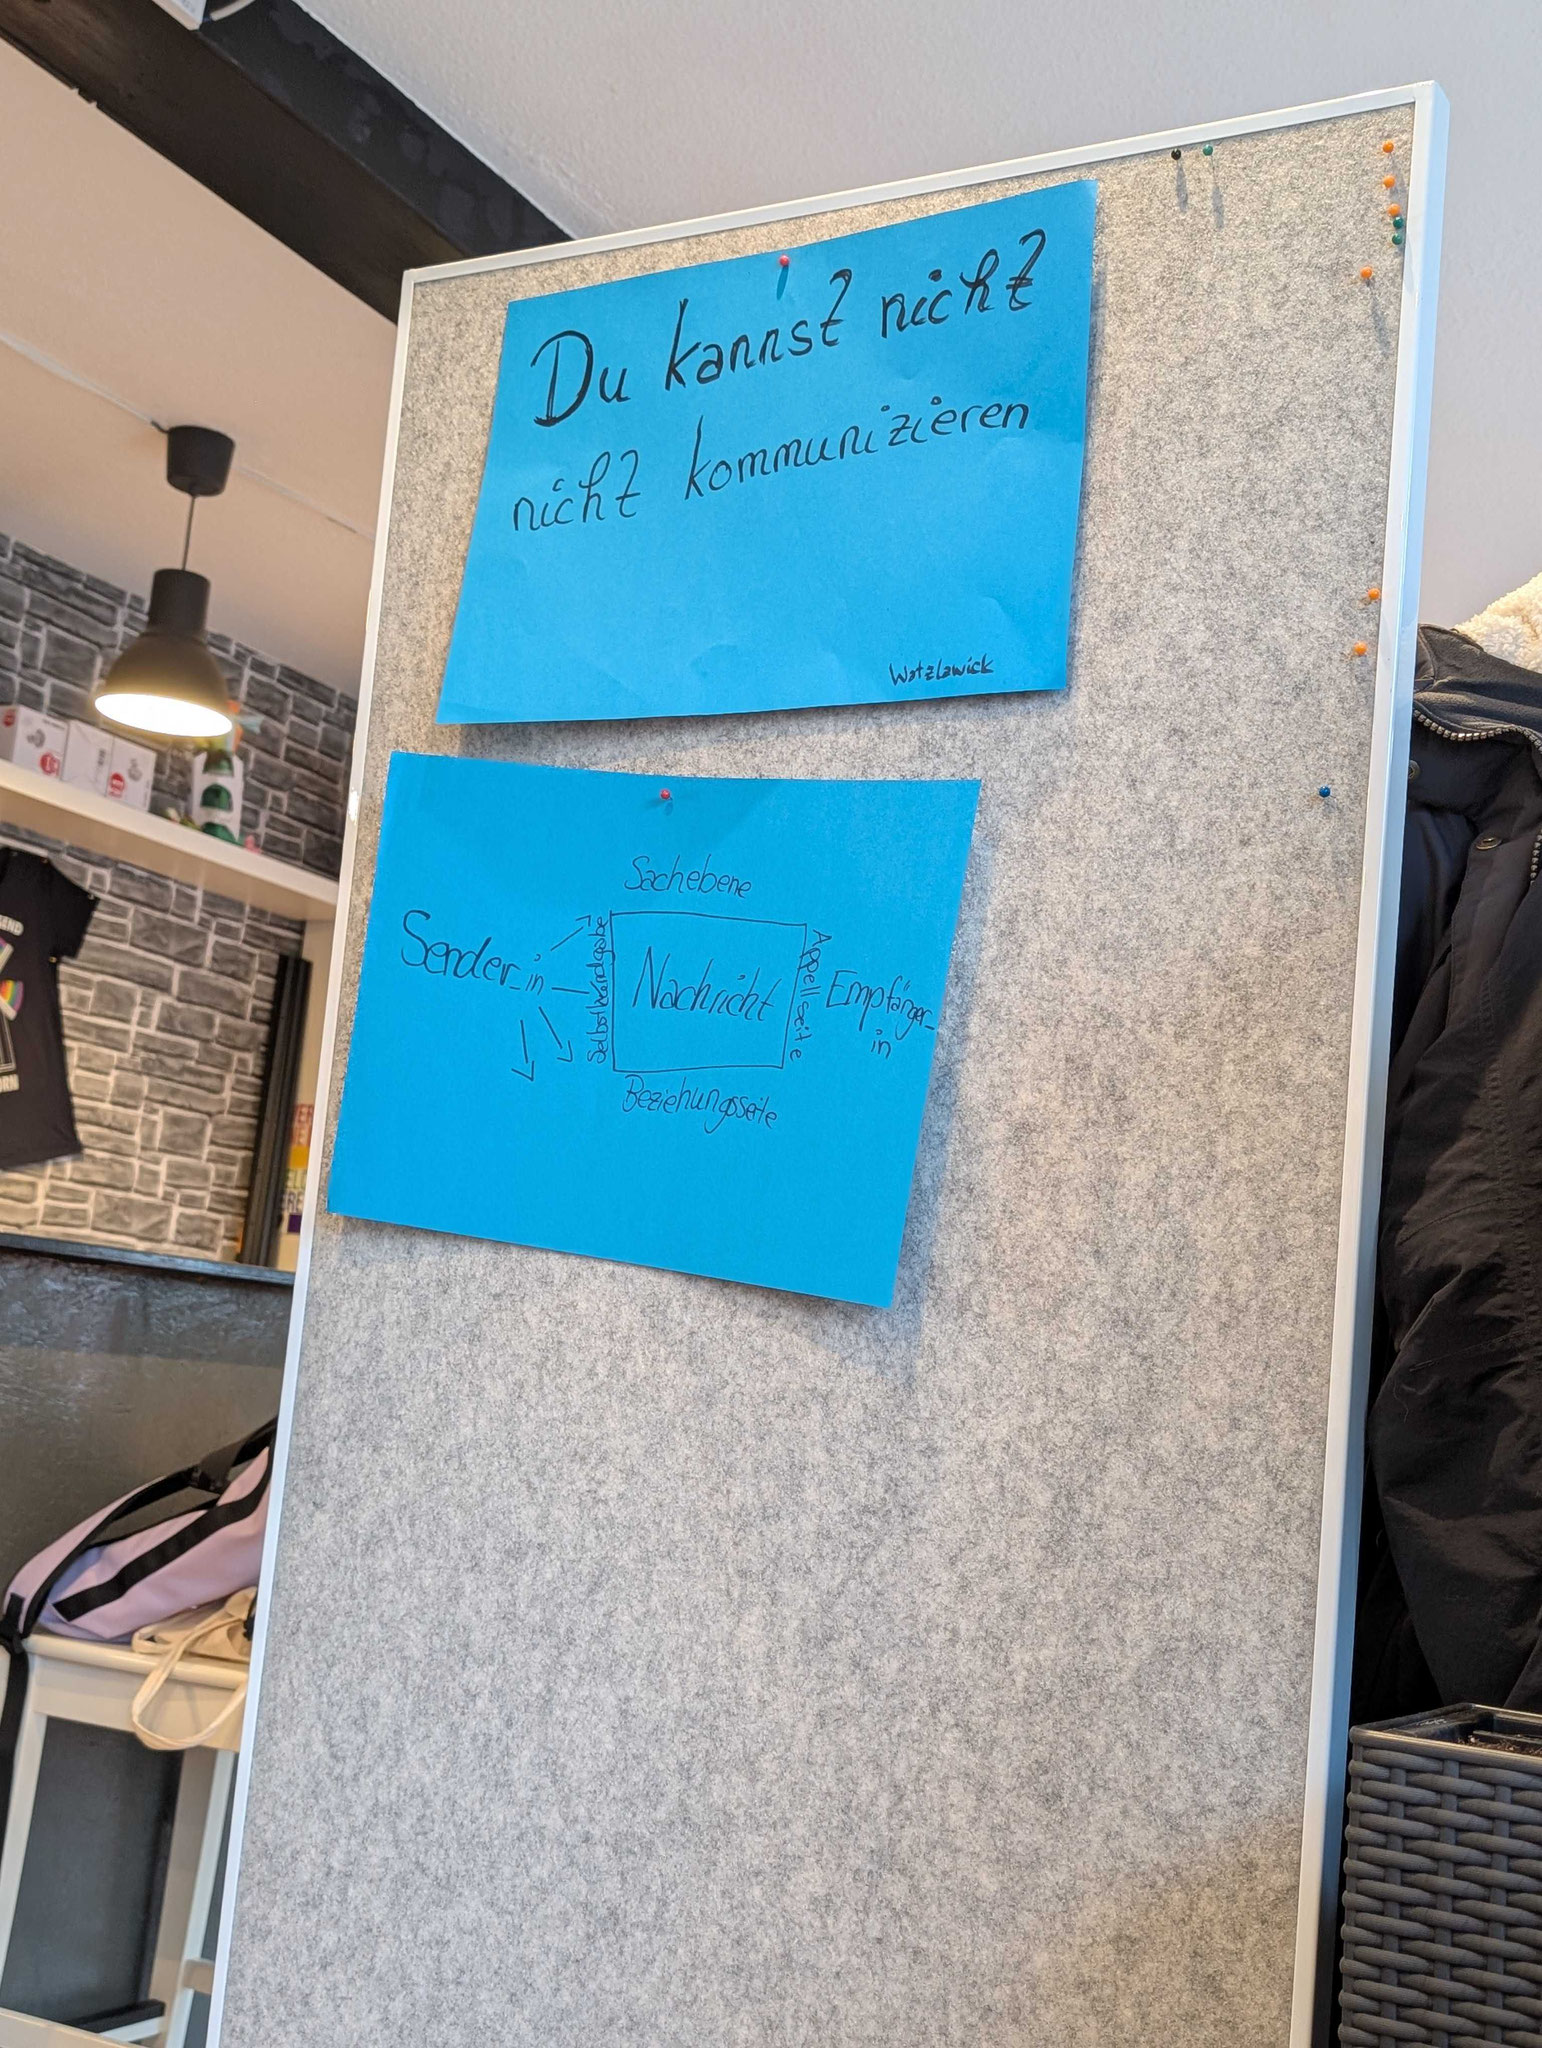 Du kannst nicht
nicht kommunizieren
Watzlawick
Sachebene
Sender_in
Selbstkundgabe
Nachricht
Appellseite
Empfänger_
in
Beziehungsseite